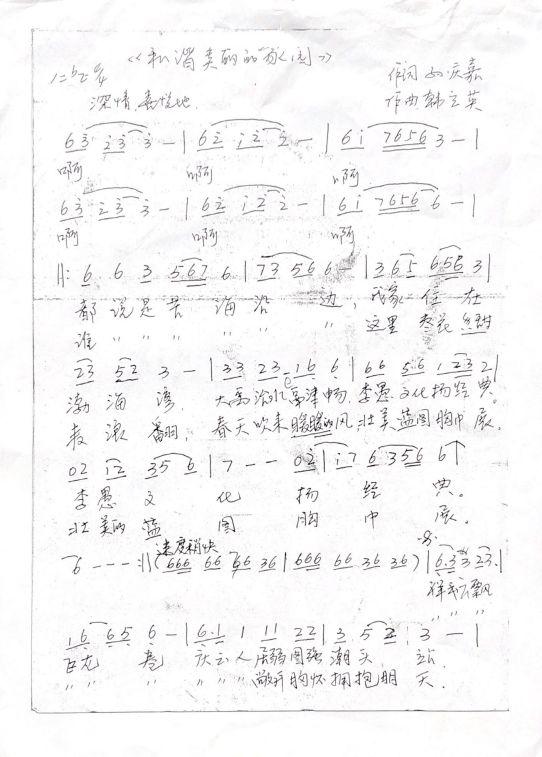 《和谐美丽的家园》
1=♭E 4/4
深情 喜悦地
作词 刘庆嘉
作曲 韩立英
6 3 2 3 3 - | 6 2 1 2 2 - | 6 i 7656 3 - |
啊 啊 啊
6 3 2 3 3 - | 6 2 1 2 2 - | 6 i 7656 6 - |
啊 啊 啊
‖: 6 6 3 567 6 | 73 566 6 - | 3 65 656 3 |
都 说 是 苦 海 沿 边, 我家 住 在
谁 〃 〃 〃 〃 〃 〃 这里 枣花 甜
23 52 3 - | 33 23 16 6 | 66 56 1 23 2 |
渤 海 湾, 大禹治水 津 畅, 李愚 文化 扬经 典。
春天 吹来 暖暖的风 壮美 蓝图 胸中 展,
02 12 35 6 | 7 - - 02 | i7 6 356 6 |
李愚 文 化 扬 经 典。
壮美的 蓝 图 胸 中 展。
6 - - - :‖ (666 66 66 36 | 666 66 36 36) | 6.3 3 23. |
速度稍快
祥云飘
16 65 6 - | 6.1 1 11 22 | 3. 5 2 3 - |
巨龙 卷 庆云人 图强 潮头 立,
〃 〃 〃 〃 〃 〃 敞开 胸怀 拥抱明 天,